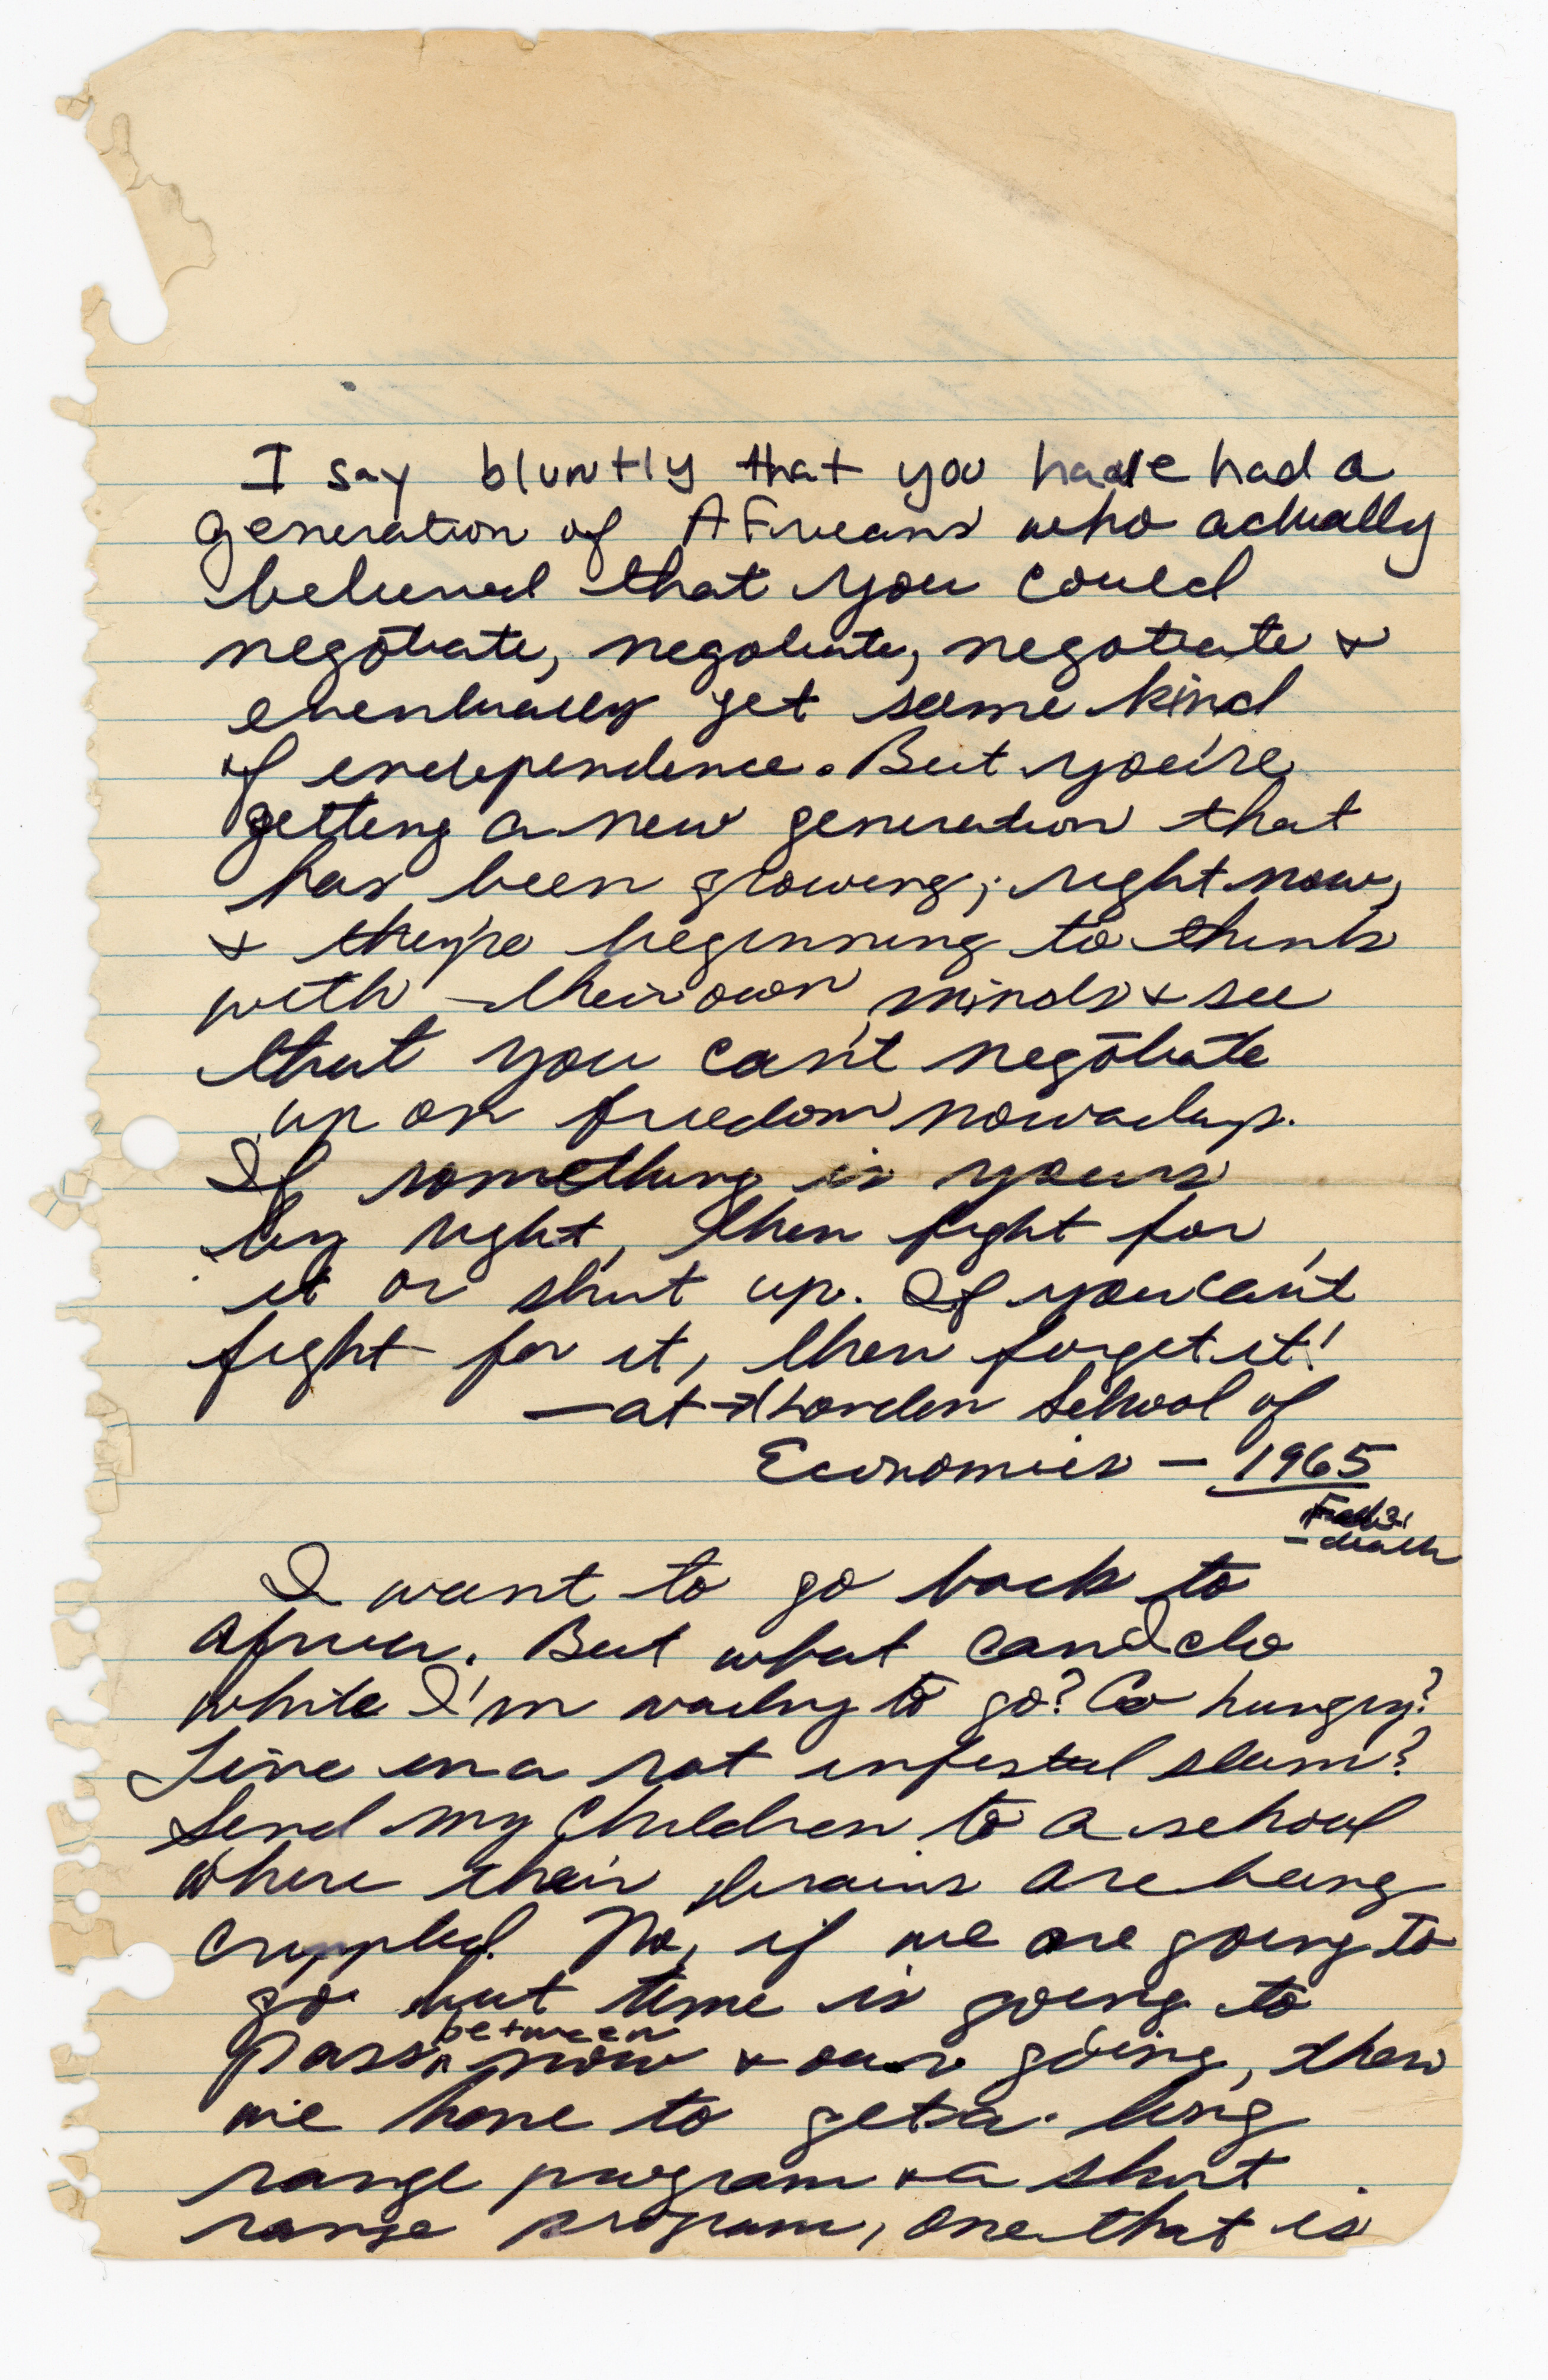 I say bluntly that you have had a
generation of AFricans who actually
believed that you could
negotiate, negotiate, negotiate &
eventually get some kind
of independence. But you're
getting a new generation that
has been growing, right now,
& they're beginning to think
with their own minds & see
that you can't negotiate
up on freedom nowadays.
If something is yours
by right, then fight for
it or shut up. If you can't
fight for it, then forget it!
— at London School of
Economics — 1965
- death
I want to go back to
Africa. But what can I do
while I'm waiting to go? Go hungry?
Live in a rat infested slum?
Send my children to a school
where their brains are being
crippled. No, if we are going to
go but time is going to
pass between now & our going, then
we have to get a long
range program & a short
range program, one that is